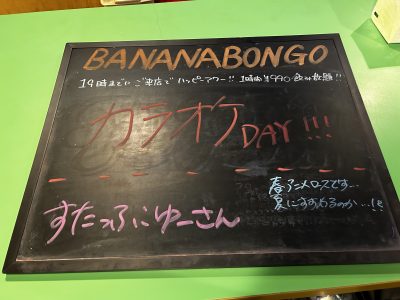 BANANABONGO
19時までにご来店でハッピーアワー!! 1時間¥990飲み放題!!
カラオケDAY!!!
春アニメロスです…
夏にすすめるのか…!?
すたっふにゅーさん